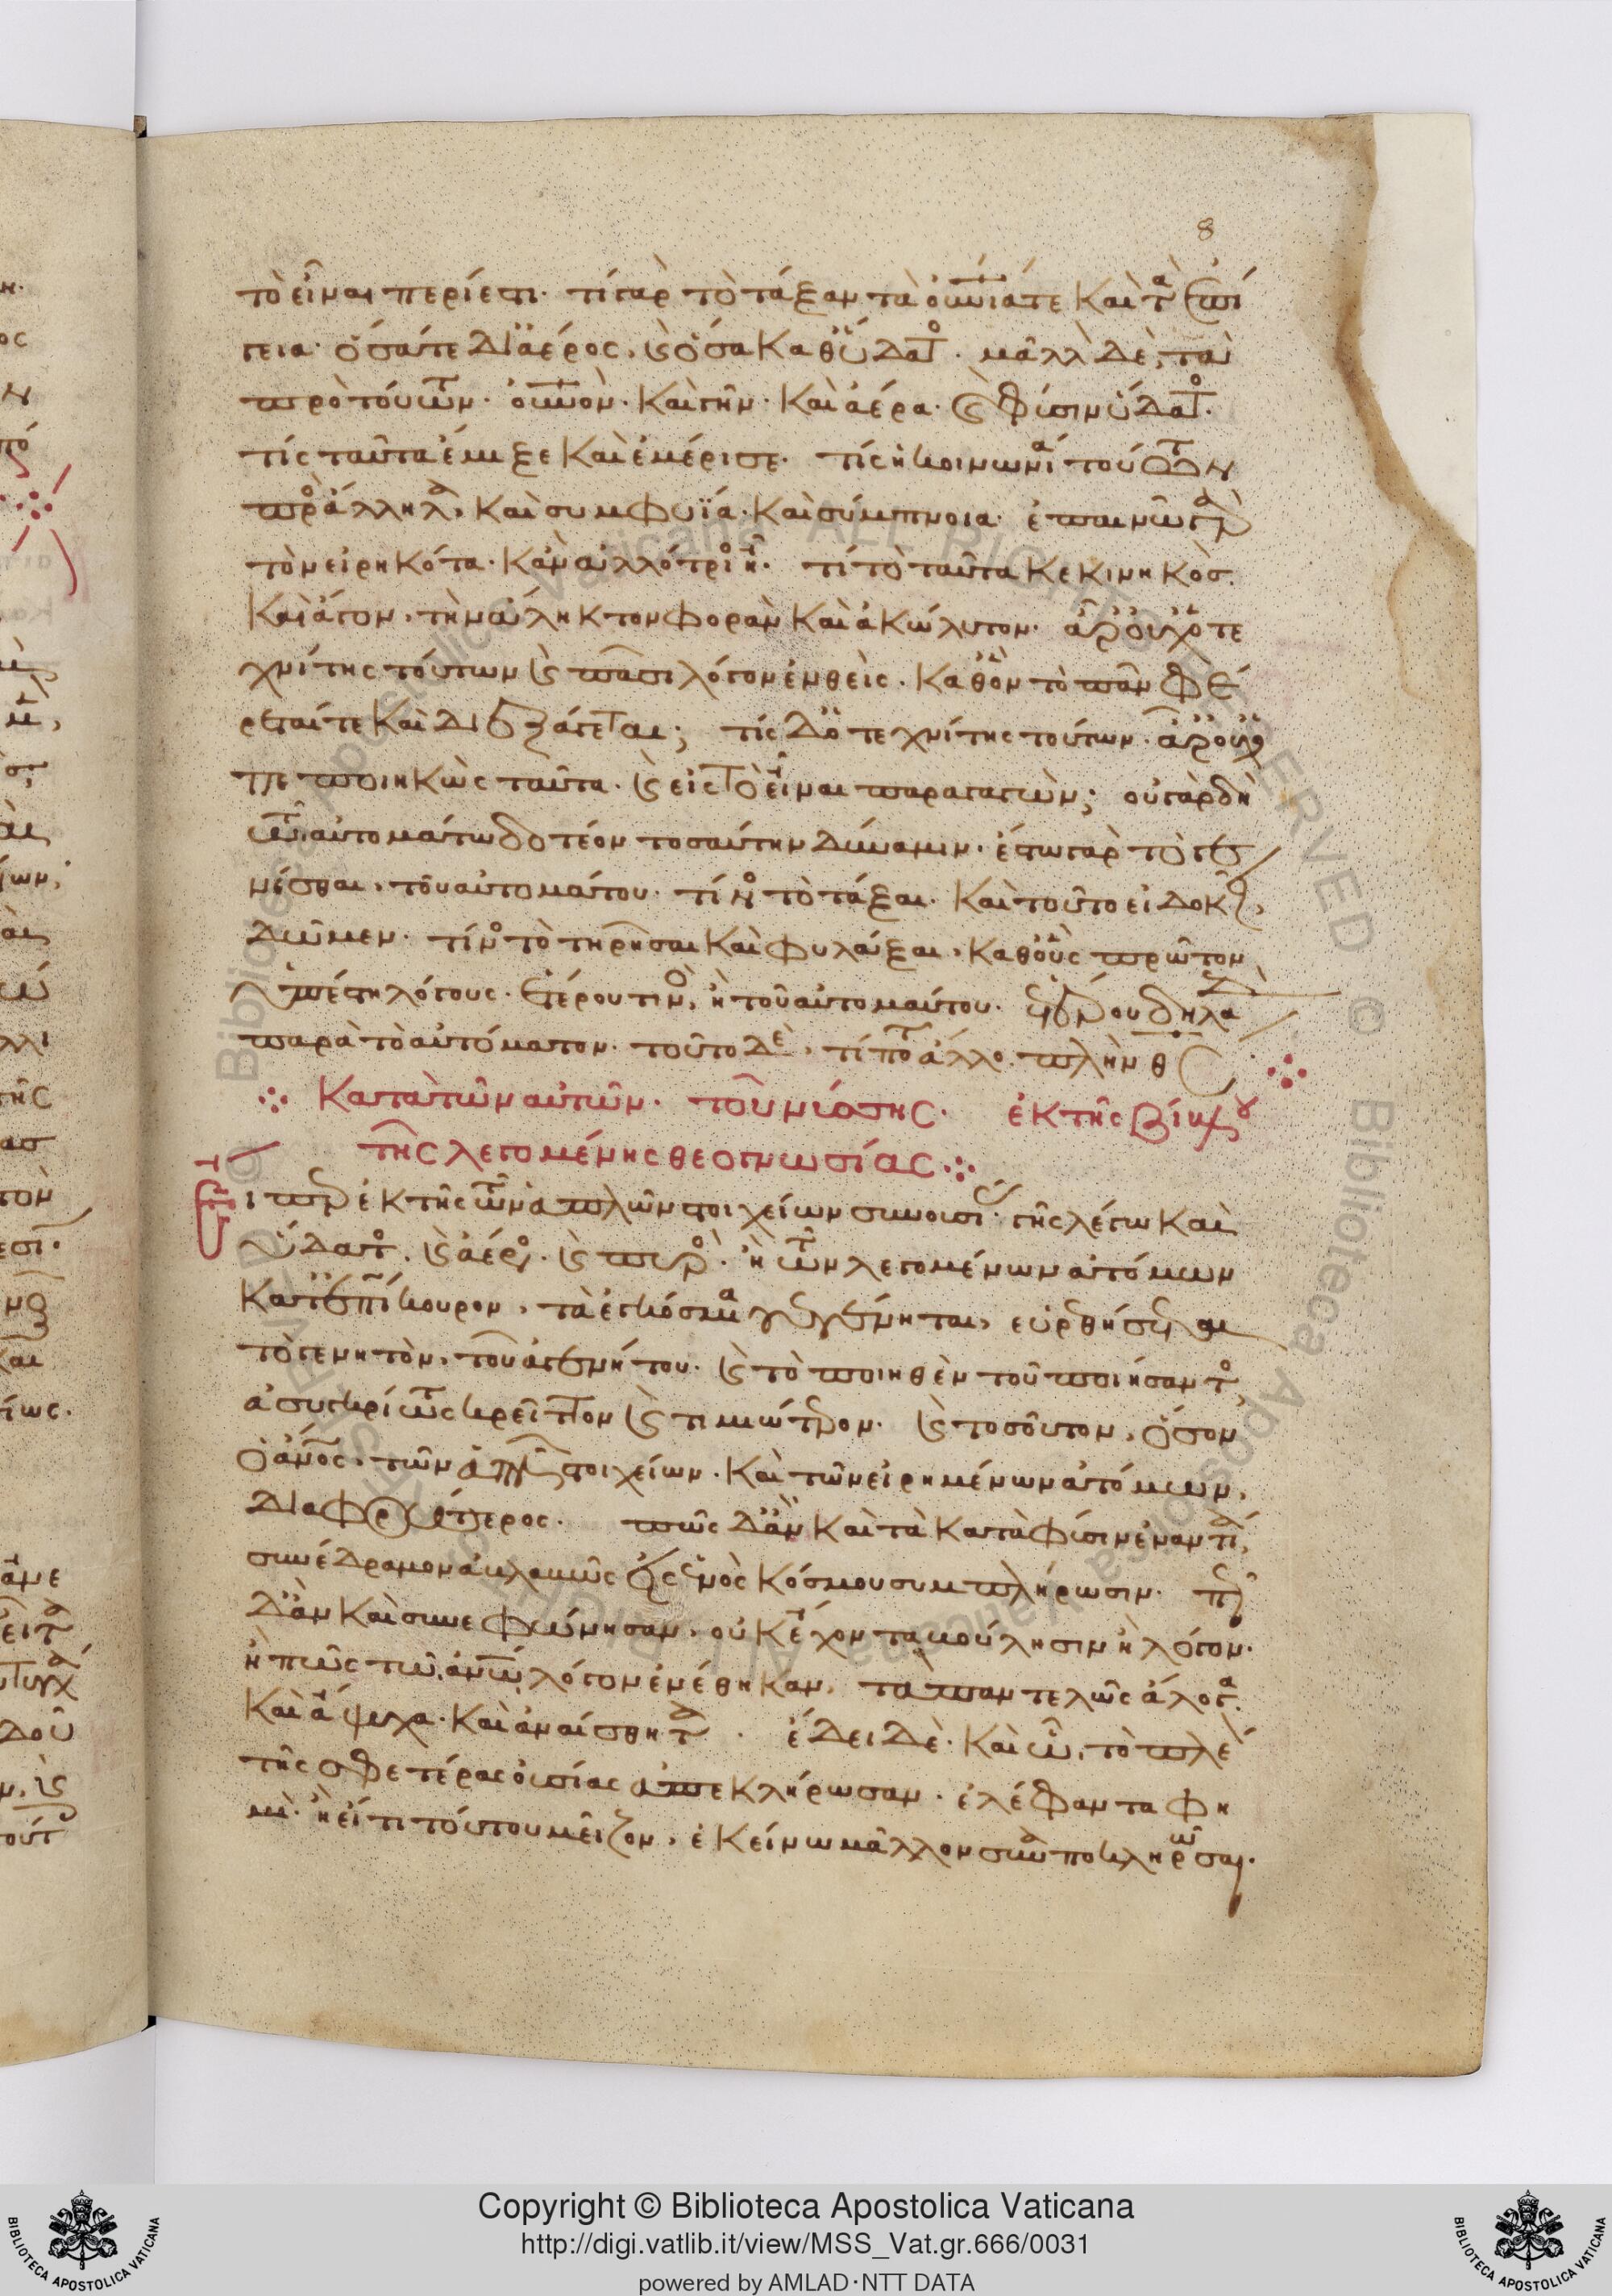 8
τὸ εἶναι περίεστι· τί γὰρ τὸ τάξαν τά οὐνιά τε καὶ τὰ ἐπί
γεια· ὅσα τε δι ἀέρος, καὶ ὅσα καθ ὕδατος· μᾶλλον δὲ, τὰ
πρὸ τούτων· οὐνὸν· καὶ γῆν· καὶ ἀέρα· καὶ φύσιν ὕδατος·
τίς ταῦτα ἔμιξε καὶ ἐμέρισε· τίς ἡ κοινωνία τούτων
πρὸς ἄλληλα, καὶ συμφυΐα· καὶ σύμπνοια· ἐπαινῶ γὰρ
τὸν εἰρηκότα· κἂν ἀλλότριος ᾖ· τί τὸ ταῦτα κεκινηκὸς
καὶ ἄγον, τὴν ἄληκτον φορὰν καὶ ἀκώλυτον· ἆρ οὐχ ὁ τε
χνίτης τούτων καὶ πᾶσι λόγον ἐνθεὶς· καθ ὃν τὸ πᾶν φέ
ρεταί τε καὶ διεξάγεται; τίς δ ὁ τεχνίτης τούτων· ἆρ οὐχ ὁ
πεποιηκὼς ταῦτα· καὶ εἰς τὸ εἶναι παραγαγών; οὐ γὰρ δὴ
τῶ αὐτομάτω δοτέον τοσαύτην δύναμιν· ἔστω γὰρ τὸ γε
νέσθαι, τοῦ αὐτομάτου· τίνος τὸ τάξαι· καὶ τοῦτο εἰ δοκεῖ,
δῶμεν· τίνος τὸ τηρῆσαι καὶ φυλάξαι, καθ οὓς πρῶτον
ὑπέστη λόγους· ἑτέρου τινὸς, ἢ τοῦ αὐτομάτου· ἑτέρου δηλαδὴ
παρὰ τὸ αὐτόματον· τοῦτο δὲ, τί ποτε ἄλλο πλὴν θς
κατὰ τῶν αὐτῶν· τοῦ νύσσης· ἐκ τῆς βίβλου
τῆς λεγομένης θεογνωσίας
Εἴπερ ἐκ τῆς τῶν ἁπλῶν στοιχείων συνουσί· γῆς λέγω καὶ
ὕδατος· καὶ ἀέρος· καὶ πυρὸς· ἢ τῶν λεγομένων ἀτόμων
κατ ἐπίκουρον, τὰ ἐγκόσμια γεγένηται, εὑρεθήσεται
τὸ γενητὸν, τοῦ ἀγενήτου· καὶ τὸ ποιηθὲν τοῦ ποιήσαντος
ἀσυγκρίτως κρεῖττον καὶ τιμιώτερον· καὶ τοσοῦτον, ὅσον
ὁ ἄνος, τῶν ἁπλῶν στοιχείων· καὶ τῶν εἰρημένων ἀτόμων,
διαφορώτερος· πῶς δ ἂν καὶ τὰ κατὰ φύσιν ἐναντία,
συνέδραμον ἀκλονῶς εἰς ἑνὸς κόσμου συμπλήρωσιν· πῶς
δ ἂν καὶ συνεφώνησαν, οὐκ ἔχοντα βούλησιν ἢ λόγον·
ἢ πῶς τῶ ἀνω λόγον ἐνέθηκαν, τὰ παντελῶς ἄλογα
καὶ ἄψυχα· καὶ ἀναίσθητα· ἔδει δὲ· καὶ ὧ, τὸ πλέ
τῆς σφετέρας οὐσίας ἀπεκλήρωσαν· ἐλέφαντα φη
μὶ· ἢ εἴ τι τούτου μεῖζον, ἐκείνω μᾶλλον συναποκληρῶσαι·
Copyright © Biblioteca Apostolica Vaticana
http://digi.vatlib.it/view/MSS_Vat.gr.666/0031
powered by AMLAD·NTT DATA